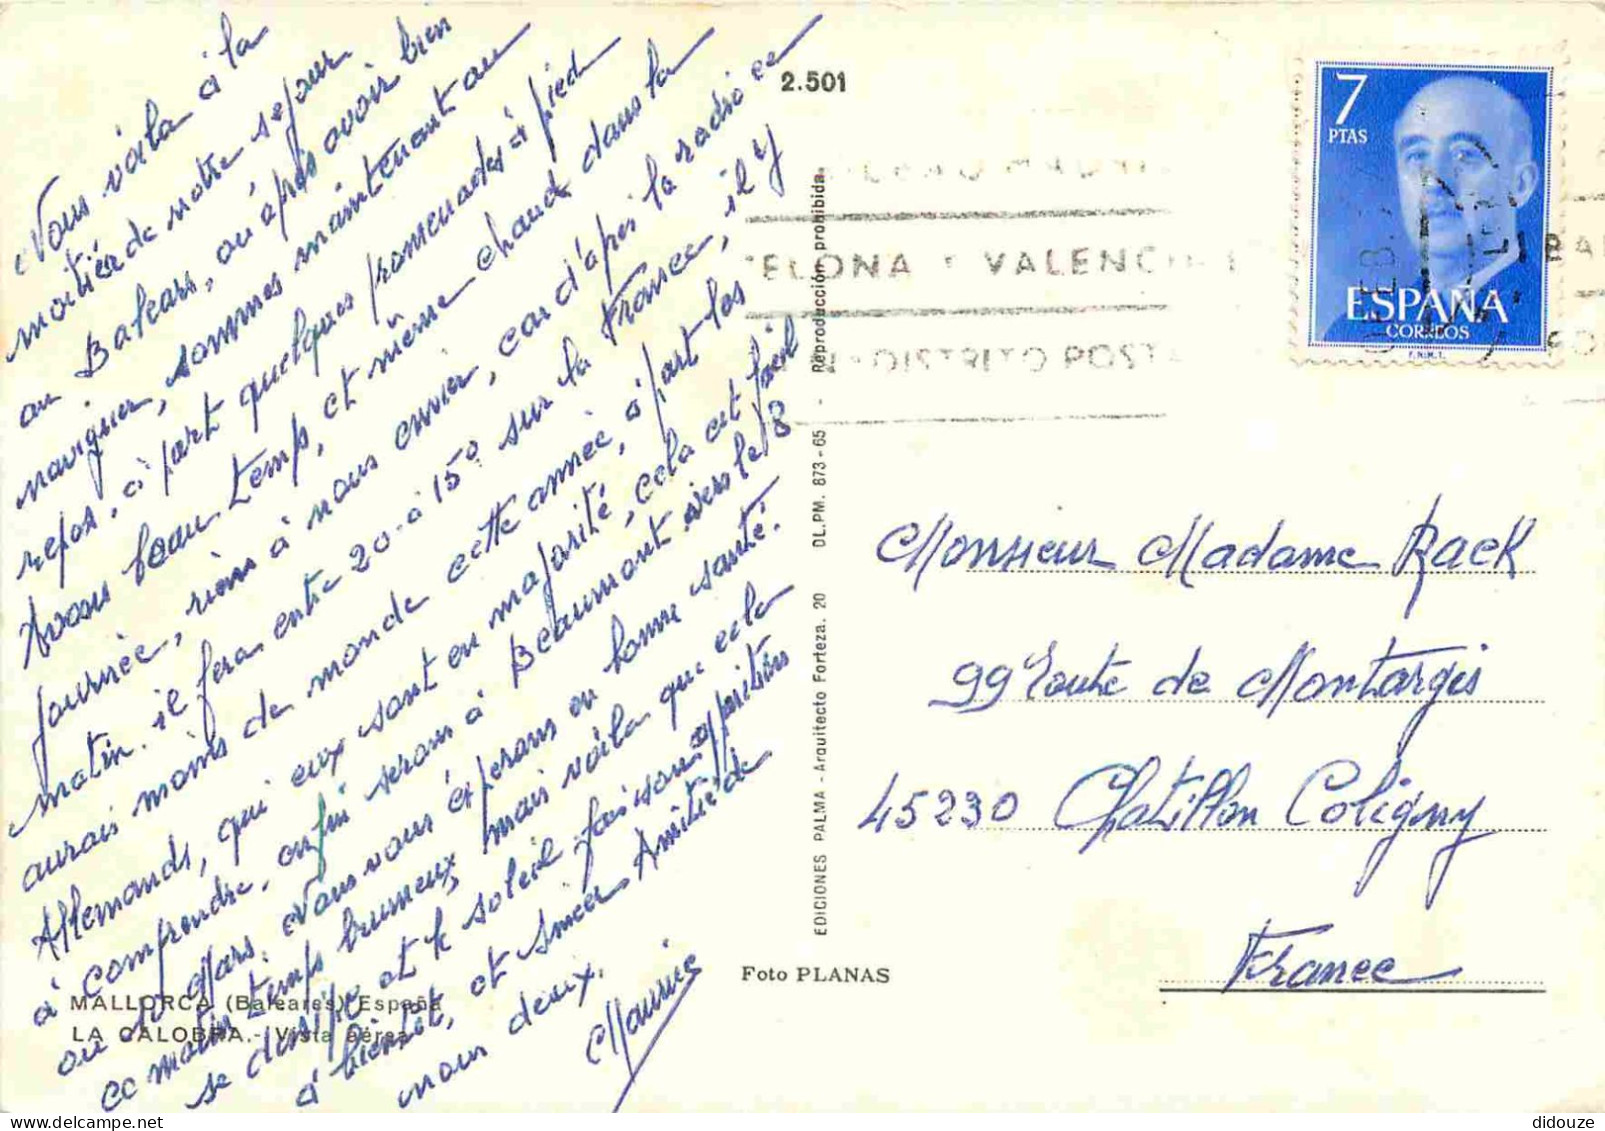 Nous voila à la
moitié de notre sejour
au Baléars, où après avoir bien
naviguer, sommes maintenant au
repos, à part quelques promenades à pied
Avons beau temps, et même chaud dans la
journée, rien à nous envier, car d'après la radio ce
matin il fera entre 20 à 15° sur la France, il y
aurais moins de monde cette année, à part les
Allemands, qui eux sont en majorité, cela est facil
à comprendre, enfin serons à Beaumont vers le 8
ou 10 Mars. Nous vous ésperons en bonne santé.
ce matin temps brumeux, mais voila que cela
se dissipe et le soleil faisons apparition
à bientôt, et Sincer Amitié de
nous deux.
Maurice
MALLORCA (Baleares) España
LA CALOBRA.- Vista aérea
2.501
EDICIONES PALMA - Arquitecto Forteza. 20 DL.PM. 873-65 - Reproducción prohibida.
Foto PLANAS
7
PTAS
ESPAÑA
CORREOS
F.N.M.T.
ELONA Y VALENCI
DISTRITO POSTA
FEB.
BA
Monsieur Madame Rack
99 Route de Montargis
45230 Chatillon Coligny
France
didouze